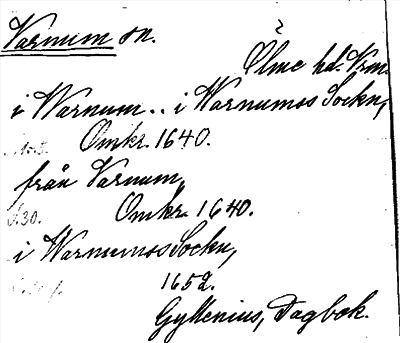 Varnum sn.
Ölme hd. Vrm.
i Warnum.. i Warnumss Sockn,
Omkr. 1640.
från Varnum,
S. 30. Omkr. 1640.
i Warnumss Sockn,
1652.
Gyllenius, Dagbok.